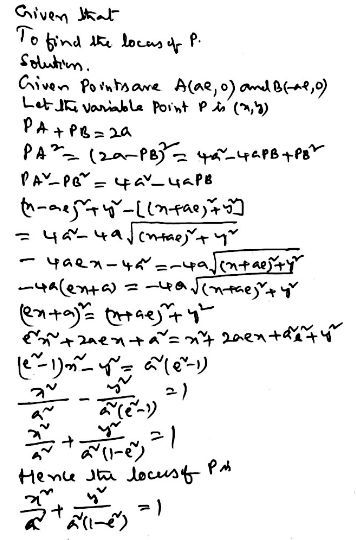 Given that
To find the locus of P.
Solution.
Given Points are A(ae, 0) and B(-ae, 0)
Let the variable point P is (x, y)
PA + PB = 2a
PA² = (2a - PB)² = 4a² - 4aPB + PB²
PA² - PB² = 4a² - 4aPB
(x - ae)² + y² - [(x + ae)² + y²]
= 4a² - 4a√(x + ae)² + y²
- 4aex - 4a² = -4a√(x + ae)² + y²
-4a(ex + a) = -4a√(x + ae)² + y²
(ex + a)² = (x + ae)² + y²
e²x² + 2aex + a² = x² + 2aex + a²e² + y²
(e² - 1)x² - y² = a²(e² - 1)
x²/a² - y²/a²(e² - 1) = 1
x²/a² + y²/a²(1 - e²) = 1
Hence the locus of P is
x²/a² + y²/a²(1 - e²) = 1